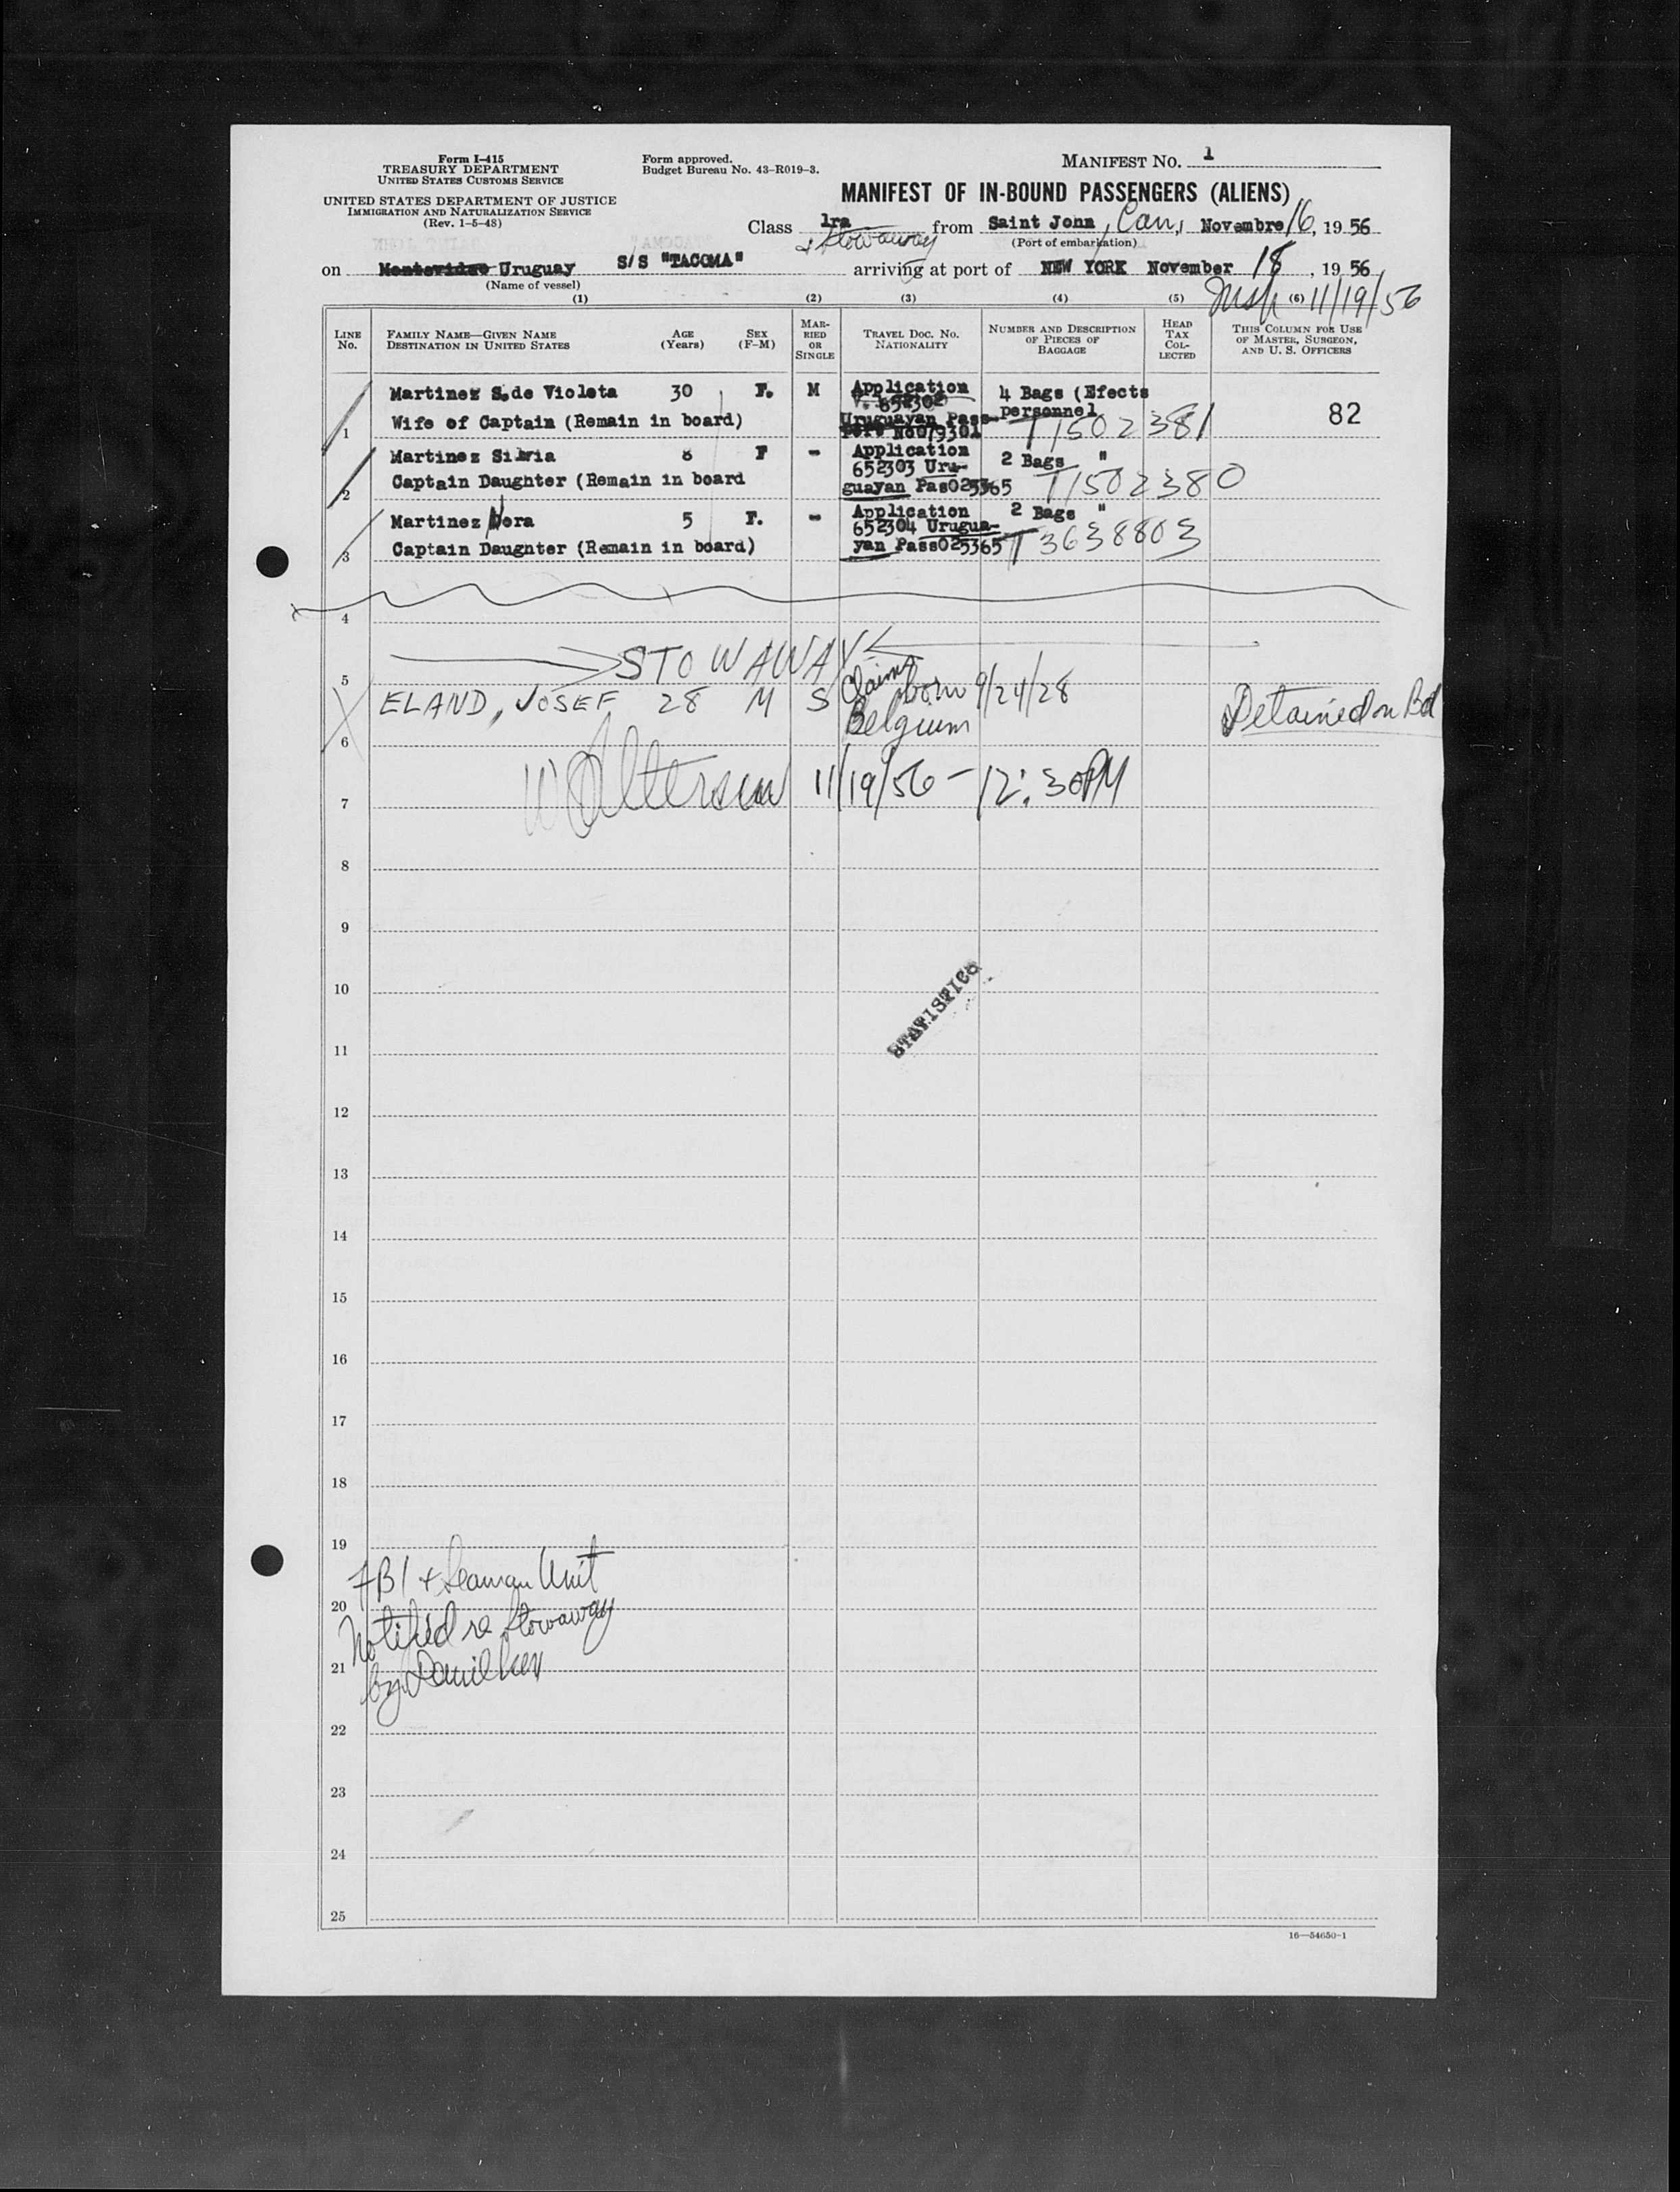 Form I-415
TREASURY DEPARTMENT
UNITED STATES CUSTOMS SERVICE
UNITED STATES DEPARTMENT OF JUSTICE
IMMIGRATION AND NATURALIZATION SERVICE
(Rev. 1-5-48)
Form approved.
Budget Bureau No. 43-R019-3.
MANIFEST NO. 1
MANIFEST OF IN-BOUND PASSENGERS (ALIENS)
Class 1ra from Saint John, Can, Novembre 16, 1956
& Stowaway
(Port of embarkation)
on Montevideo Uruguay S/S "TACOMA" arriving at port of NEW YORK November 18, 1956
(Name of vessel)
Insp 11/19/56
(1) (2) (3) (4) (5) (6)
LINE No. FAMILY NAME—GIVEN NAME DESTINATION IN UNITED STATES AGE (Years) SEX (F-M) MARRIED OR SINGLE TRAVEL DOC. NO. NATIONALITY NUMBER AND DESCRIPTION OF PIECES OF BAGGAGE HEAD TAX COLLECTED THIS COLUMN FOR USE OF MASTER, SURGEON, AND U. S. OFFICERS
Martinez S.de Violeta 30 F. M Application 4 Bags (Efects
V. 652302 personnel
1 Wife of Captain (Remain in board) Uruguayan Pass- T1502381 82
port No079301
Martinez Silvia 8 F - Application 2 Bags "
652303 Uru-
2 Captain Daughter (Remain in board guayan Pas025365 T1502380
Martinez Nora 5 F. - Application 2 Bags "
652304 Urugua-
3 Captain Daugnter (Remain in board) yan Pass025365 T3638803
4
STOWAWAY
5
ELAND, JOSEF 28 M S Claims born 9/24/28 Detained on Bd
Belgium
6
11/19/56 - 12:30PM
7
8
9
10
STATISTICS
11
12
13
14
15
16
17
18
19
FBI & Seaman Unit
20
Notified re stowaway
21
by
22
23
24
25
16—54650-1